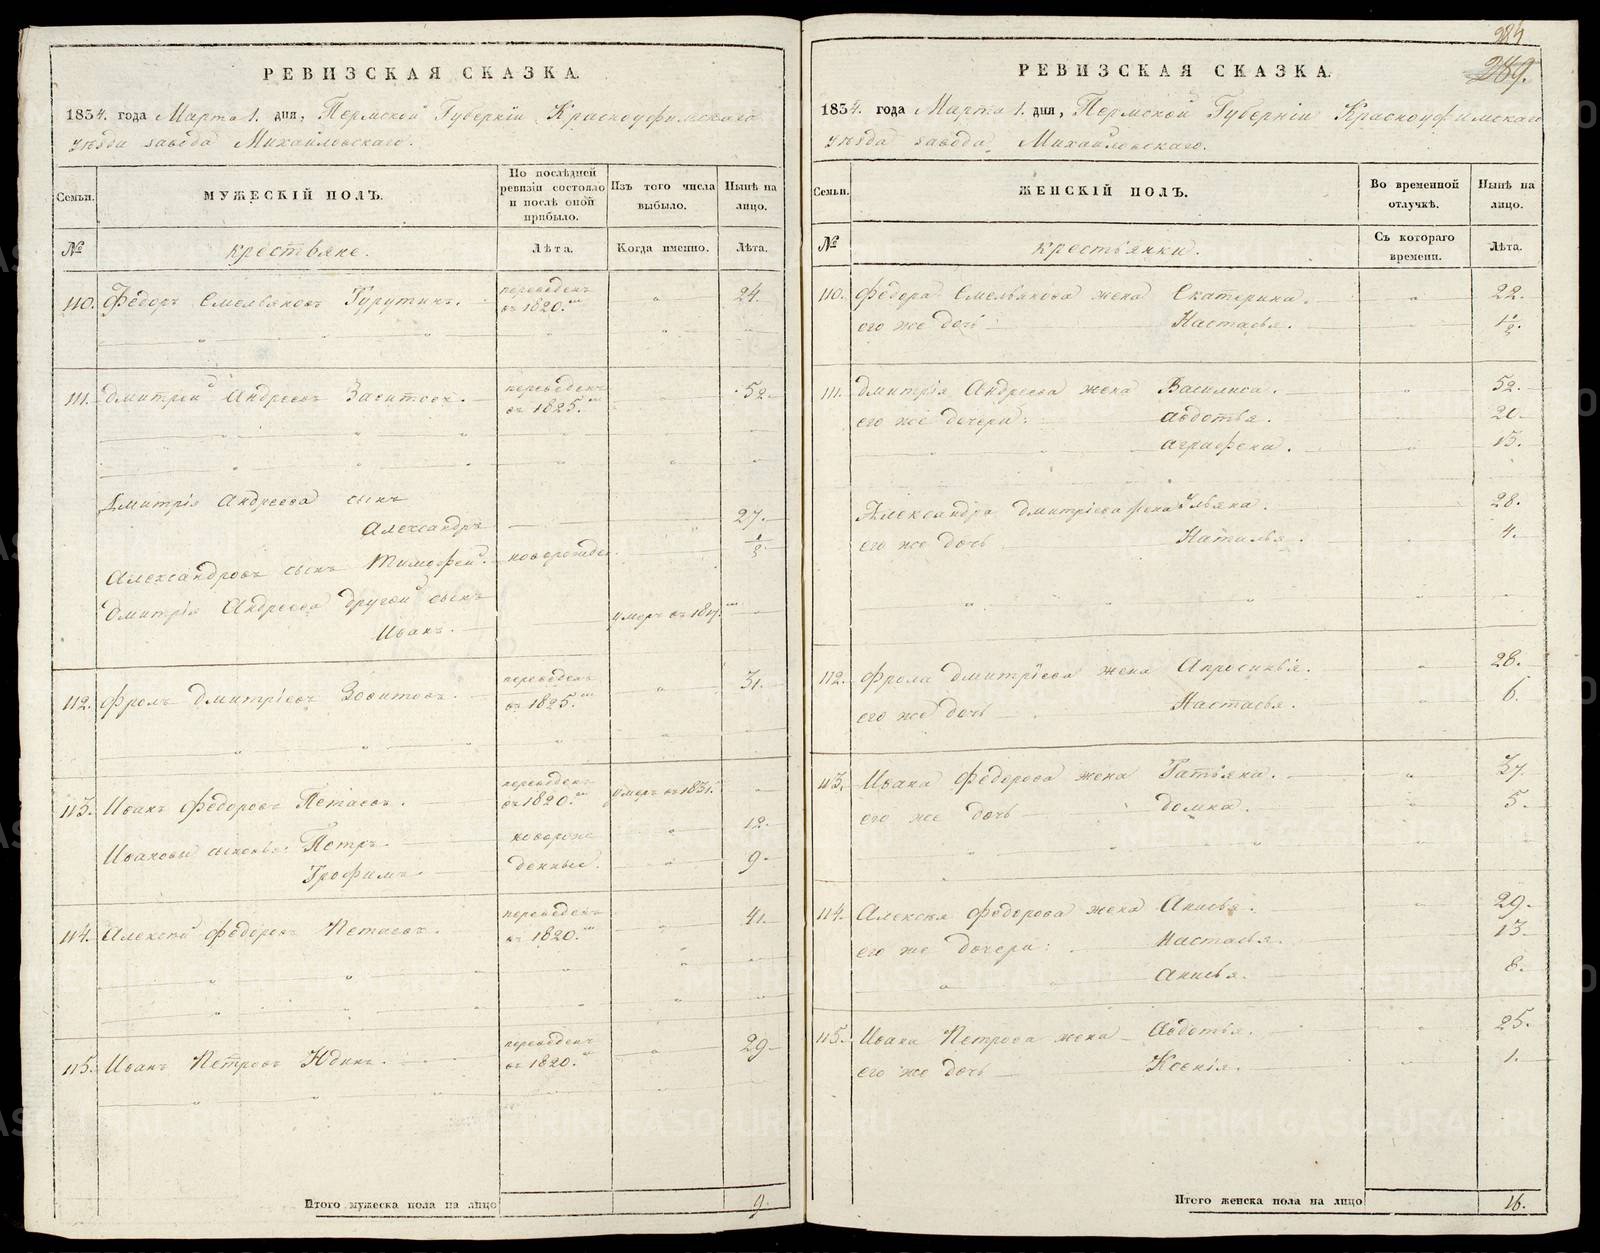 РЕВИЗСКАЯ СКАЗКА.
1834. года Марта 1. дня, Пермской Губерніи Красноуфимскаго
уѣзда завода Михайловскаго.
Семьи. МУЖЕСКІЙ ПОЛЪ. По послѣдней ревизіи состояло и послѣ оной прибыло. Изъ того числа выбыло. Нынѣ на лицо.
№ крестьяне. Лѣта. Когда именно. Лѣта.
110. Федоръ Емельяновъ переведенъ въ 1820.мъ „ 24.
111. Дмитрей Андреевъ переведенъ въ 1825.мъ „ 52.
Дмитрія Андреева сынъ
Александръ 27.
Александровъ сынъ Тимофей.
Дмитрія Андреева другой сынъ
Иванъ. умеръ въ
112. Фролъ Дмитріевъ переведенъ въ 1825.мъ „ 31.
113. Иванъ Федоровъ Петаевъ. переведенъ въ 1820.мъ умеръ въ 1831.
Ивановы сыновья: Петръ. новорож „ 12.
Трофимъ. денные. „ 9.
114. Алексей Федоровъ Петаевъ. переведенъ въ 1820.мъ „ 41.
115. Иванъ Петровъ Юдинъ. переведенъ въ 1820.мъ „ 29
Итого мужеска пола на лицо 9.
284
289.
РЕВИЗСКАЯ СКАЗКА.
1834. года Марта 1. дня, Пермской Губерніи Красноуфимскаго
уѣзда завода Михайловскаго.
Семьи. ЖЕНСКІЙ ПОЛЪ. Во временной отлучкѣ. Нынѣ на лицо.
№ крестьянки. Съ котораго времени. Лѣта.
110. Федора Емельянова жена Екатерина. „ 22.
его же дочь Настасья.
111. Дмитрія Андреева жена Василиса. „ 52.
его же дочери: Авдотья. 20.
Аграфена. 15.
Александра Дмитріева жена Ульяна. 28.
его же дочь Наталья. 4.
112. Фрола Дмитріева жена Апросинья. „ 28.
его же дочь Настасья. 6.
113. Ивана Федорова жена Татьяна. „ 37
его же дочь Домна. 5.
114. Алексѣя Федорова жена Анисья. „ 29.
его же дочери: Настасья. 13
Анисья. 8.
115. Ивана Петрова жена Авдотья. „ 25.
его же дочь Ксенія. 1.
Итого женска пола на лицо 16.
METRIKI.GASO-URAL.RU